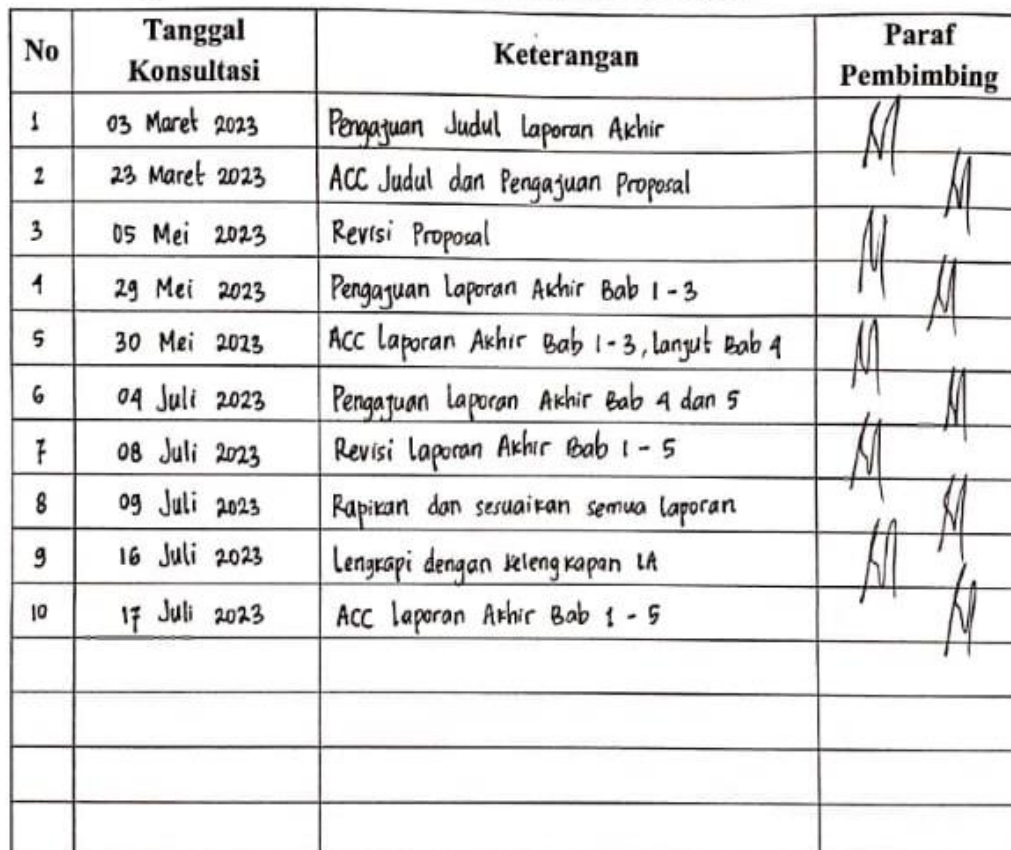 No Tanggal Konsultasi Keterangan Paraf Pembimbing
1 03 Maret 2023 Pengajuan Judul Laporan Akhir
2 23 Maret 2023 ACC Judul dan Pengajuan Proposal
3 05 Mei 2023 Revisi Proposal
4 29 Mei 2023 Pengajuan Laporan Akhir Bab 1 - 3
5 30 Mei 2023 ACC Laporan Akhir Bab 1 - 3, Lanjut Bab 4
6 04 Juli 2023 Pengajuan Laporan Akhir Bab 4 dan 5
7 08 Juli 2023 Revisi Laporan Akhir Bab 1 - 5
8 09 Juli 2023 Rapikan dan sesuaikan semua Laporan
9 16 Juli 2023 Lengkapi dengan kelengkapan LA
10 17 Juli 2023 ACC Laporan Akhir Bab 1 - 5